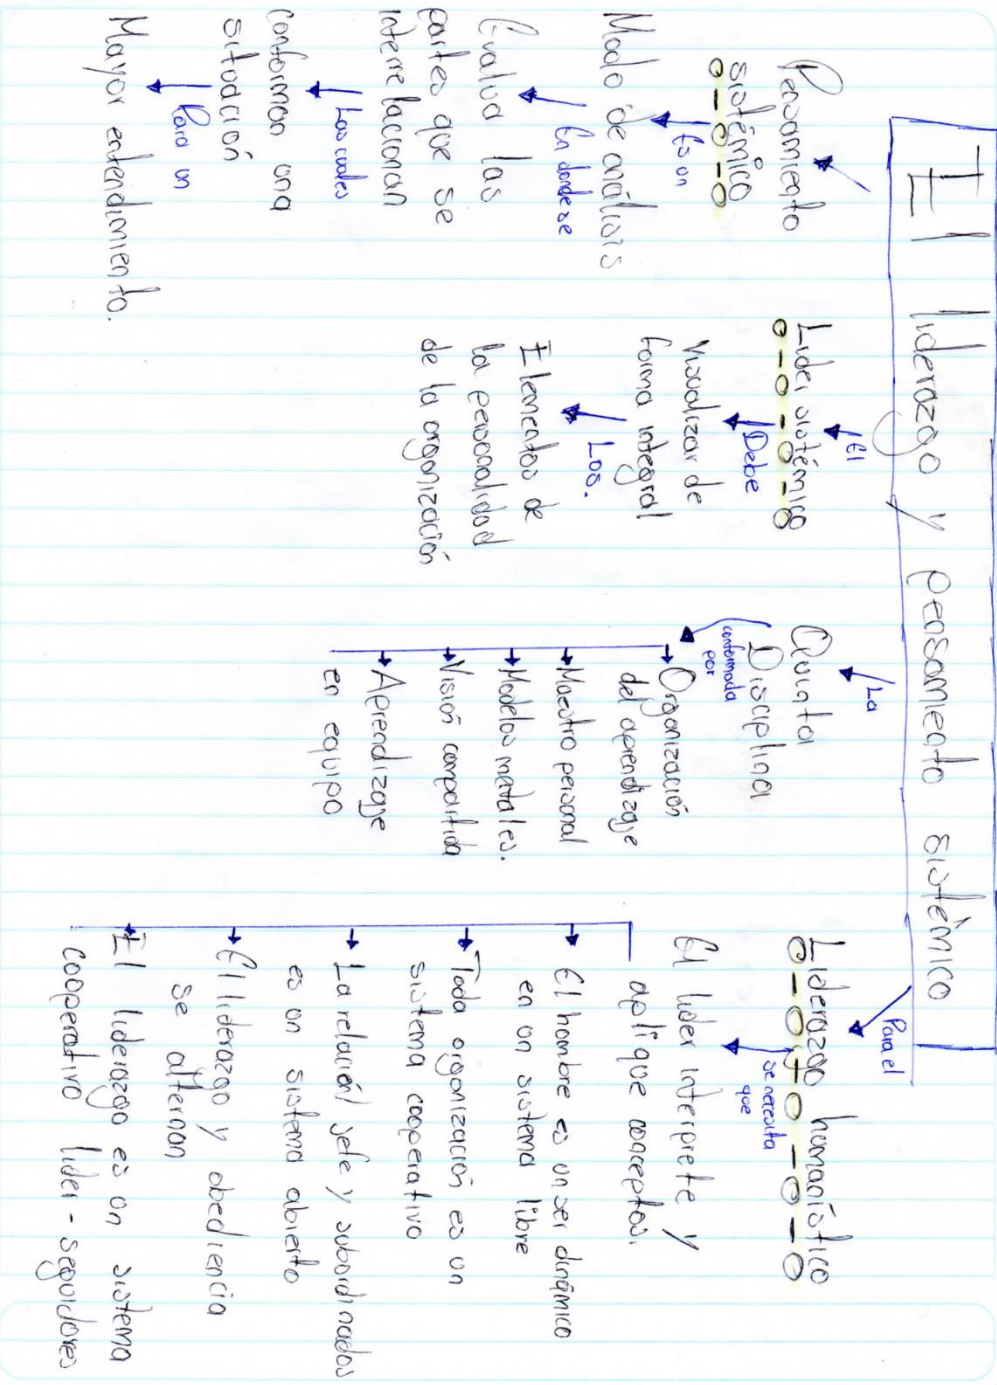 El liderazgo y pensamiento sistémico
Pensamiento
sistémico
Es un
Modo de análisis
En donde se
Evalua las
partes que se
interrelacionan
Las cuales
conforman una
situación
Para un
Mayor entendimiento.
El
Lider sistémico
Debe
Visualizar de
forma integral
Los.
Elementos de
la personalidad
de la organización
La
Quinta
Disciplina
conformada
por
Organización
del aprendizaje
Maestro personal
Modelos metales.
Visión compartida
Aprendizaje
en equipo
Para el
Liderazgo homanístico
se necesita
que
El lider interprete y
aplique conceptos.
El hombre es un ser dinámico
en un sistema libre
Toda organización es un
sistema cooperativo
La relación/ jefe y subordinados
es un sistema abierto
El liderazgo y obediencia
se alternan
El liderazgo es un sistema
cooperativo lider - seguidores